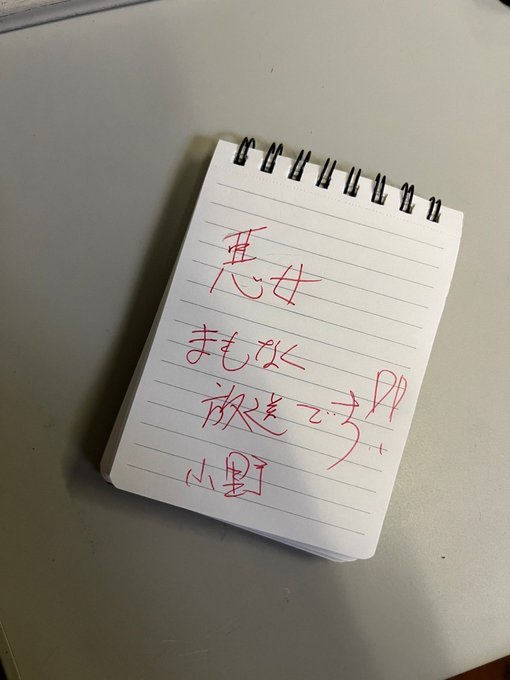 悪女
まもなく
放送です!!
小野